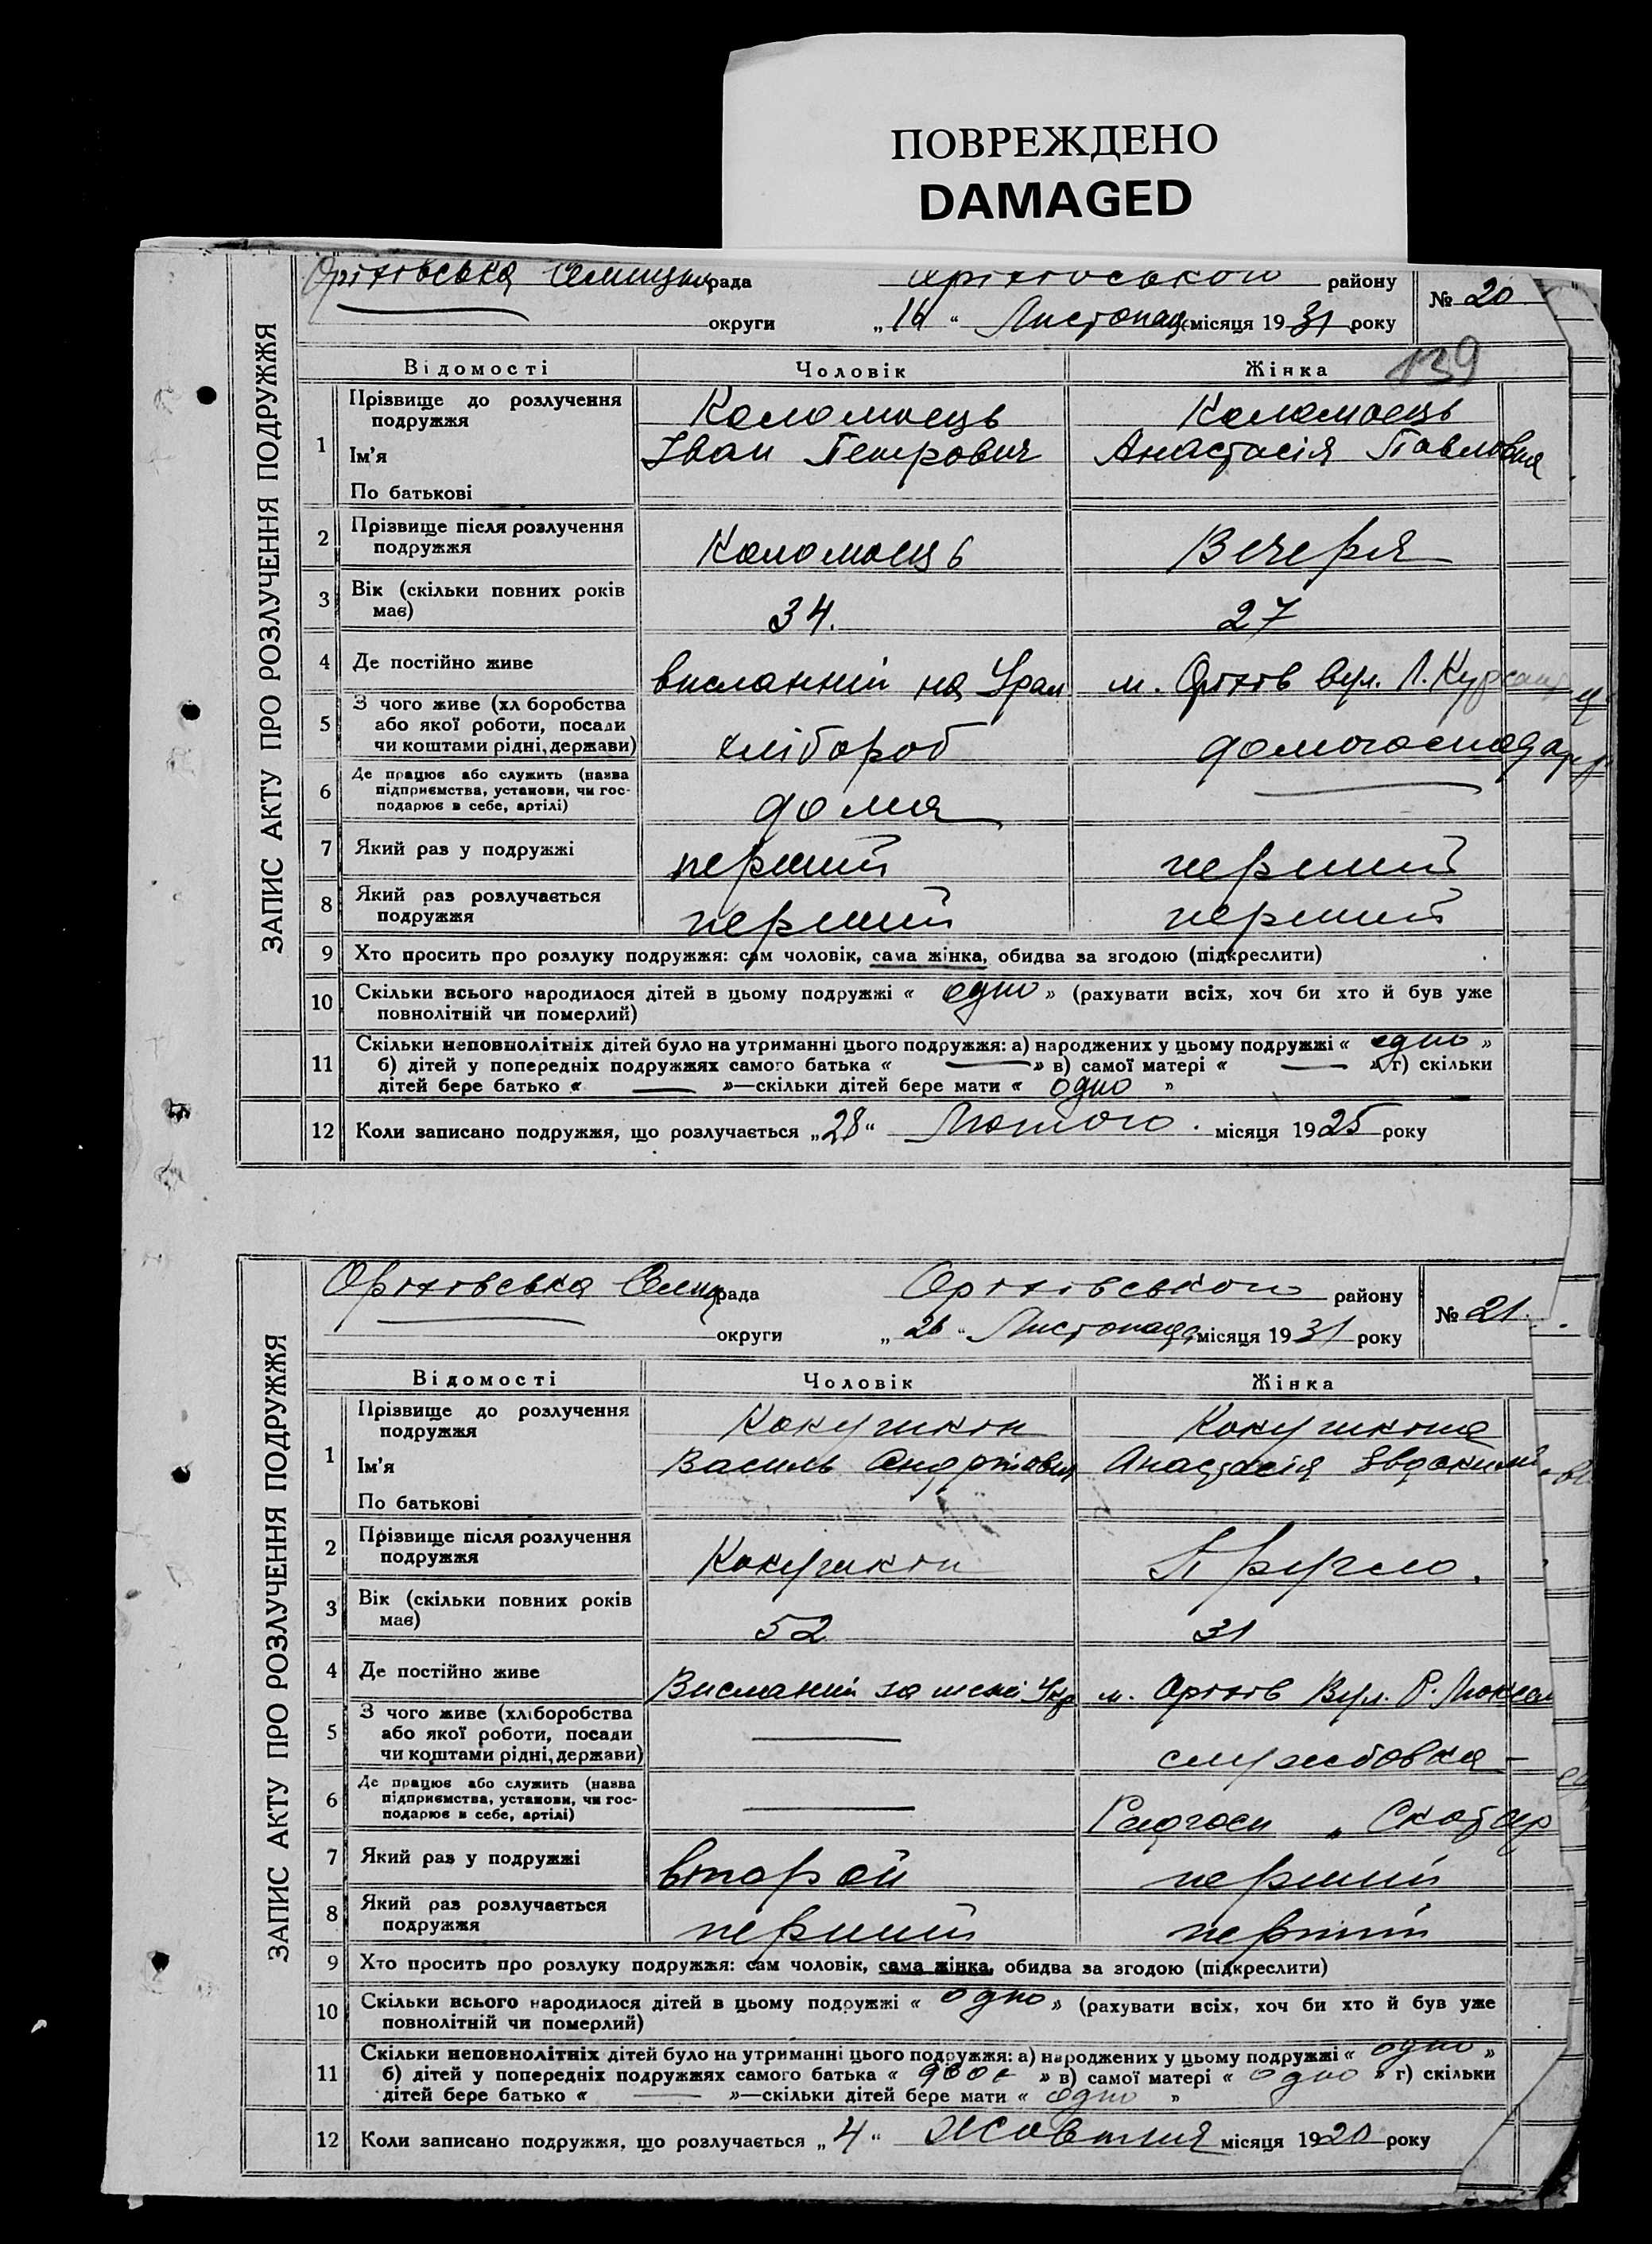 ПОВРЕЖДЕНО
DAMAGED
ЗАПИС АКТУ ПРО РОЗЛУЧЕННЯ ПОДРУЖЖЯ
Оріхівська Селищна рада Оріхівського району № 20
округи „16“ Листопада місяця 1931 року
139
Відомості Чоловік Жінка
1 Прізвище до розлучення подружжя Коломоець Коломоець
Ім'я Іван Петрович Анастасія Павловна
По батькові
2 Прізвище після розлучення
подружжя Коломоець Вечеря
3 Вік (скільки повних років
має) 34. 27
4 Де постійно живе висланний на Урал м. Оріхів вул. Л. Курсанців
5 З чого живе (хліборобства
або якої роботи, посади
чи коштами рідні, держави) хлібороб домогосподар
6 Де працює або служить (назва
підприємства, установи, чи гос-
подарює в себе, артілі) дома
7 Який раз у подружжі перший перший
8 Який раз розлучається
подружжя перший перший
9 Хто просить про розлуку подружжя: сам чоловік, сама жінка, обидва за згодою (підкреслити)
10 Скільки всього народилося дітей в цьому подружжі « одно » (рахувати всіх, хоч би хто й був уже
повнолітній чи померлий)
11 Скільки неповнолітніх дітей було на утриманні цього подружжя: а) народжених у цьому подружжі « одно »
б) дітей у попередніх подружжях самого батька « — » в) самої матері « — » г) скільки
дітей бере батько « — »—скільки дітей бере мати « одно »
12 Коли записано подружжя, що розлучається „28“ Лютого. місяця 1925 року
ЗАПИС АКТУ ПРО РОЗЛУЧЕННЯ ПОДРУЖЖЯ
Оріхівська Селищ рада Оріхівського району № 21.
округи „26“ Листопада місяця 1931 року
Відомості Чоловік Жінка
1 Прізвище до розлучення
подружжя Кокушкін Кокушкіна
Ім'я Василь Андрійович Анастасія Евдокимов
По батькові
2 Прізвище після розлучення
подружжя Кокушкін
3 Вік (скільки повних років
має) 52 31
4 Де постійно живе Висланий за межі Укр м. Оріхів Вул. Р. Люксем
5 З чого живе (хліборобства
або якої роботи, посади
чи коштами рідні, держави) — службовка
6 Де працює або служить (назва
підприємства, установи, чи гос-
подарює в себе, артілі) — Радгосп „Скотар
7 Який раз у подружжі второй перший
8 Який раз розлучається
подружжя перший перший
9 Хто просить про розлуку подружжя: сам чоловік, сама жінка, обидва за згодою (підкреслити)
10 Скільки всього народилося дітей в цьому подружжі « одно » (рахувати всіх, хоч би хто й був уже
повнолітній чи померлий)
11 Скільки неповнолітніх дітей було на утриманні цього подружжя: а) народжених у цьому подружжі « одно »
б) дітей у попередніх подружжях самого батька « двое » в) самої матері « одно » г) скільки
дітей бере батько « — »—скільки дітей бере мати « одно »
12 Коли записано подружжя, що розлучається „4“ Жовтня місяця 1920 року